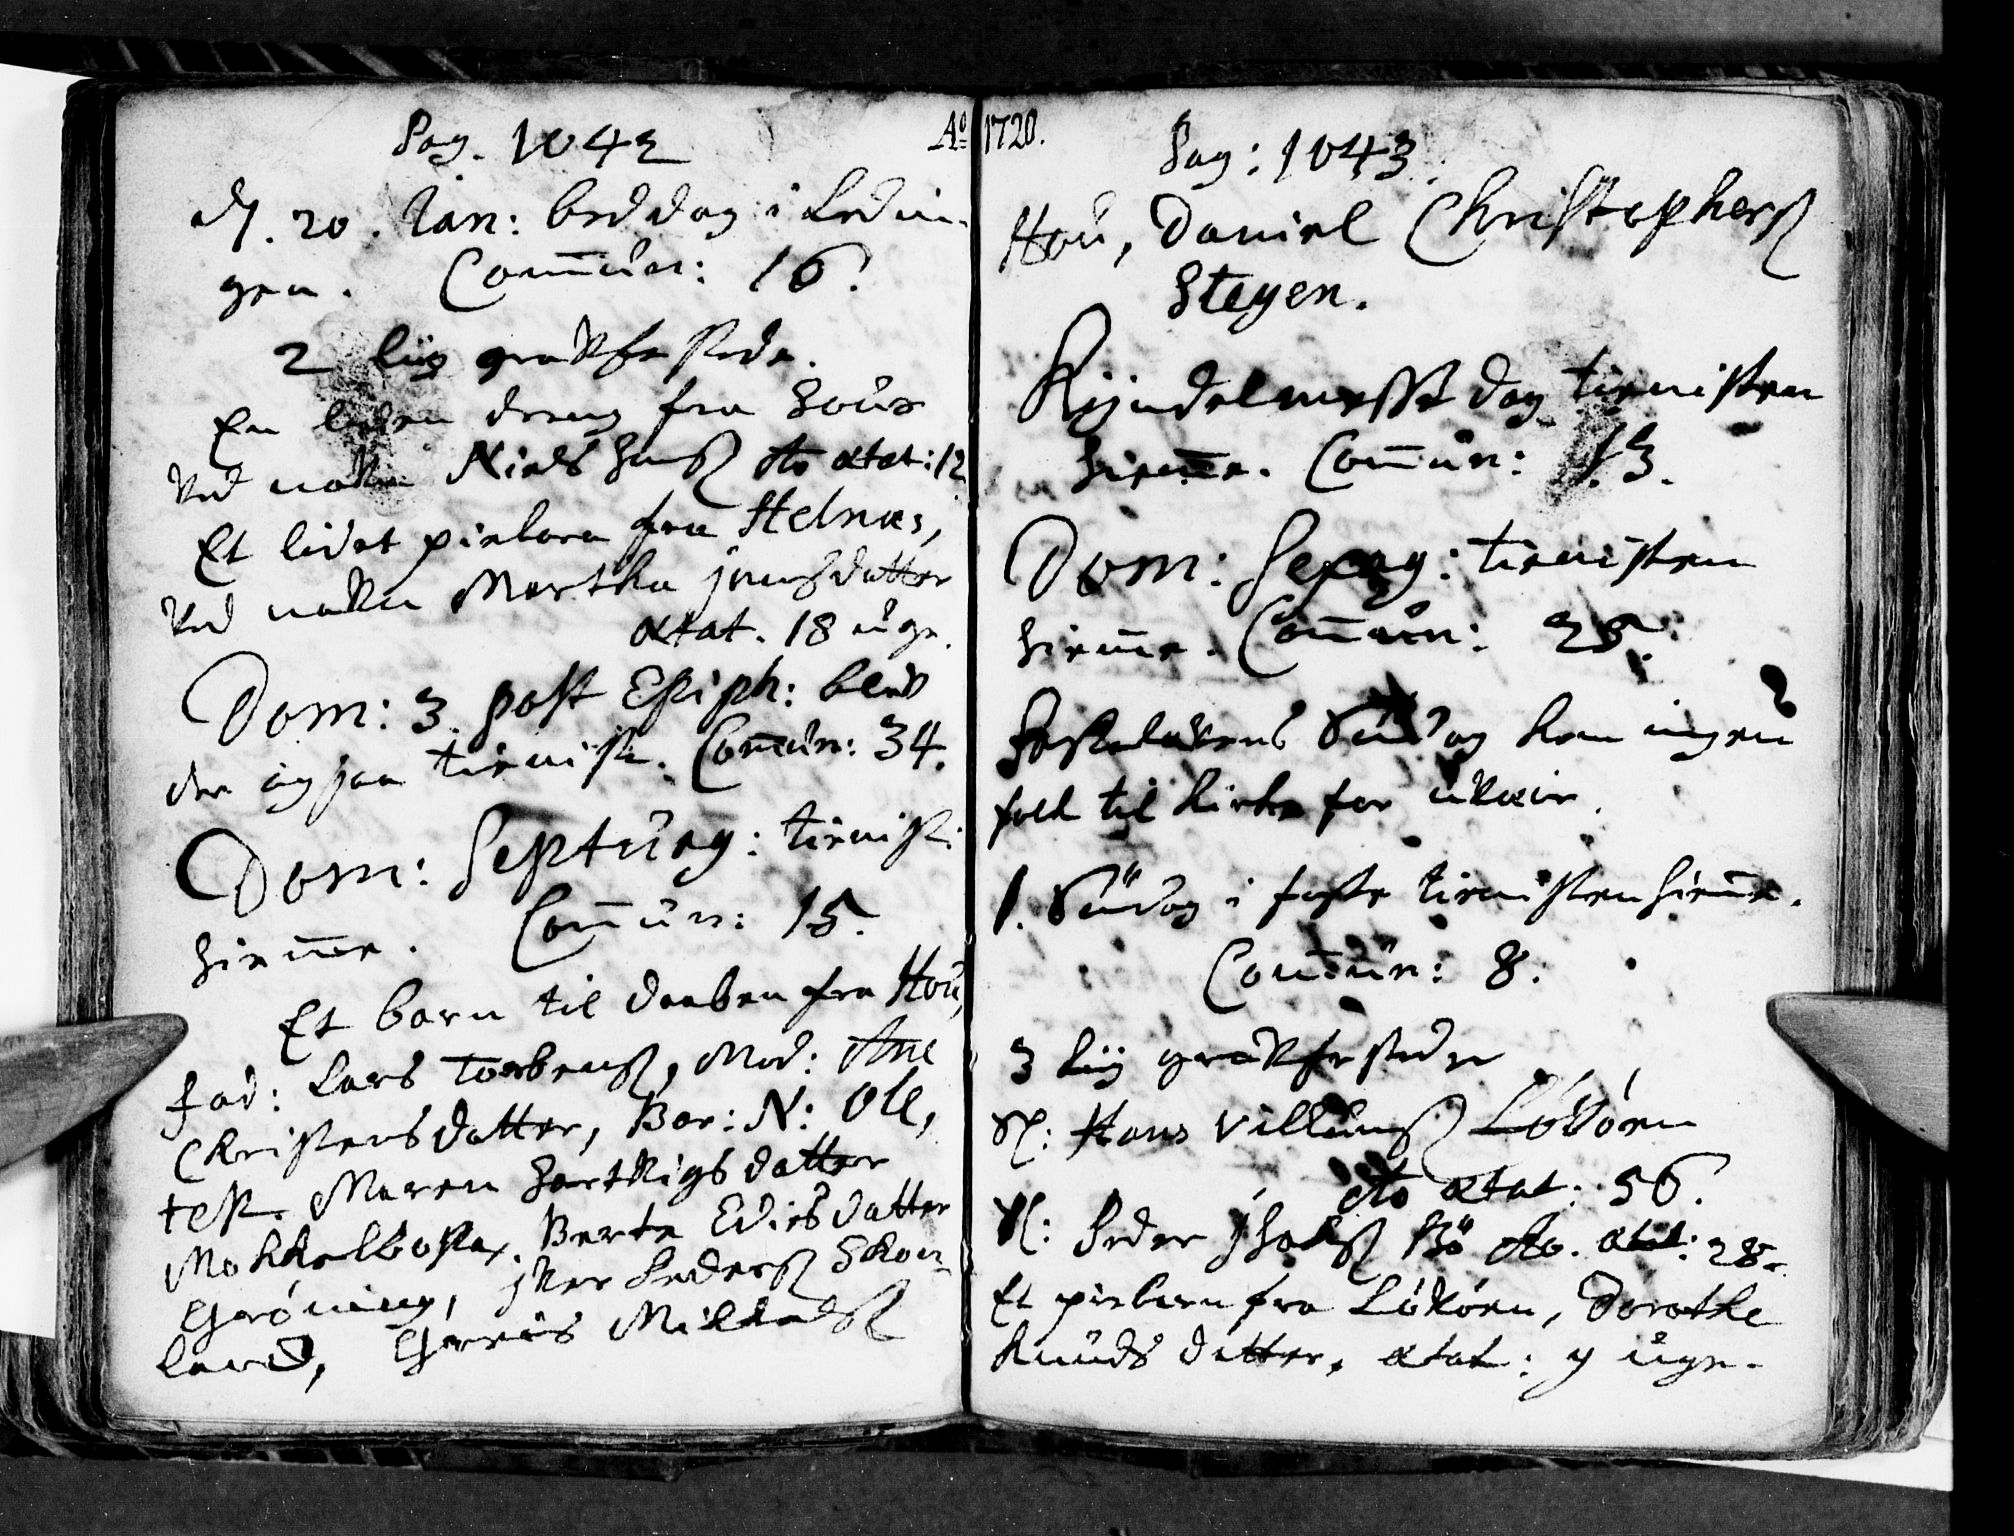 Pag. 1042
d. 20. Jan: beddag i Ledin-
gen. Com̅un: 16.
2 liig graffestede.
En liden dreng fra Houe
ved nafn Niels Hans ÿ Ao ætat: 12
Et lidet pigebarn fra Helnæs,
ved nafn Martha Jensdatter
ætat. 18 uger.
Dom: 3. post Epiph: blev
der ingen tienist. Com̅un: 34.
Dom: Septuag: tienist:
hiem̅e. Com̅un: 15.
Et barn til daaben fra Hou,
fad: Lars Torbens, Mod: Ane
Christensdatter, Bar: N: Ole,
test. Maren Hartvigsdatter
Mokkelbostad, Berte Edisdatter
Grøning, Iver Peders Skou-
land, Mikkels
Ao 1720.
Pag: 1043.
Hou, Daniel Christophers
Stegen.
Kyndelmesse dag tienisten
hiem̅e. Com̅un: 13.
Dom: Sexag: tienisten
hiem̅e. Com̅un: 25.
Fastelavens Sŭdag kom ingen
folk til kirke for uveir.
1. Sŭdag i faste tienisten hiem̅e.
Com̅un: 8.
3 liig graffestede
Sl: Hans Villums Løvøen
Ao ætat: 56.
Sl: Peder Bø Ao. ætat: 28.
Et pigebarn fra Løvøen, Dorothe
Knudsdatter, ætat: 7 uger.